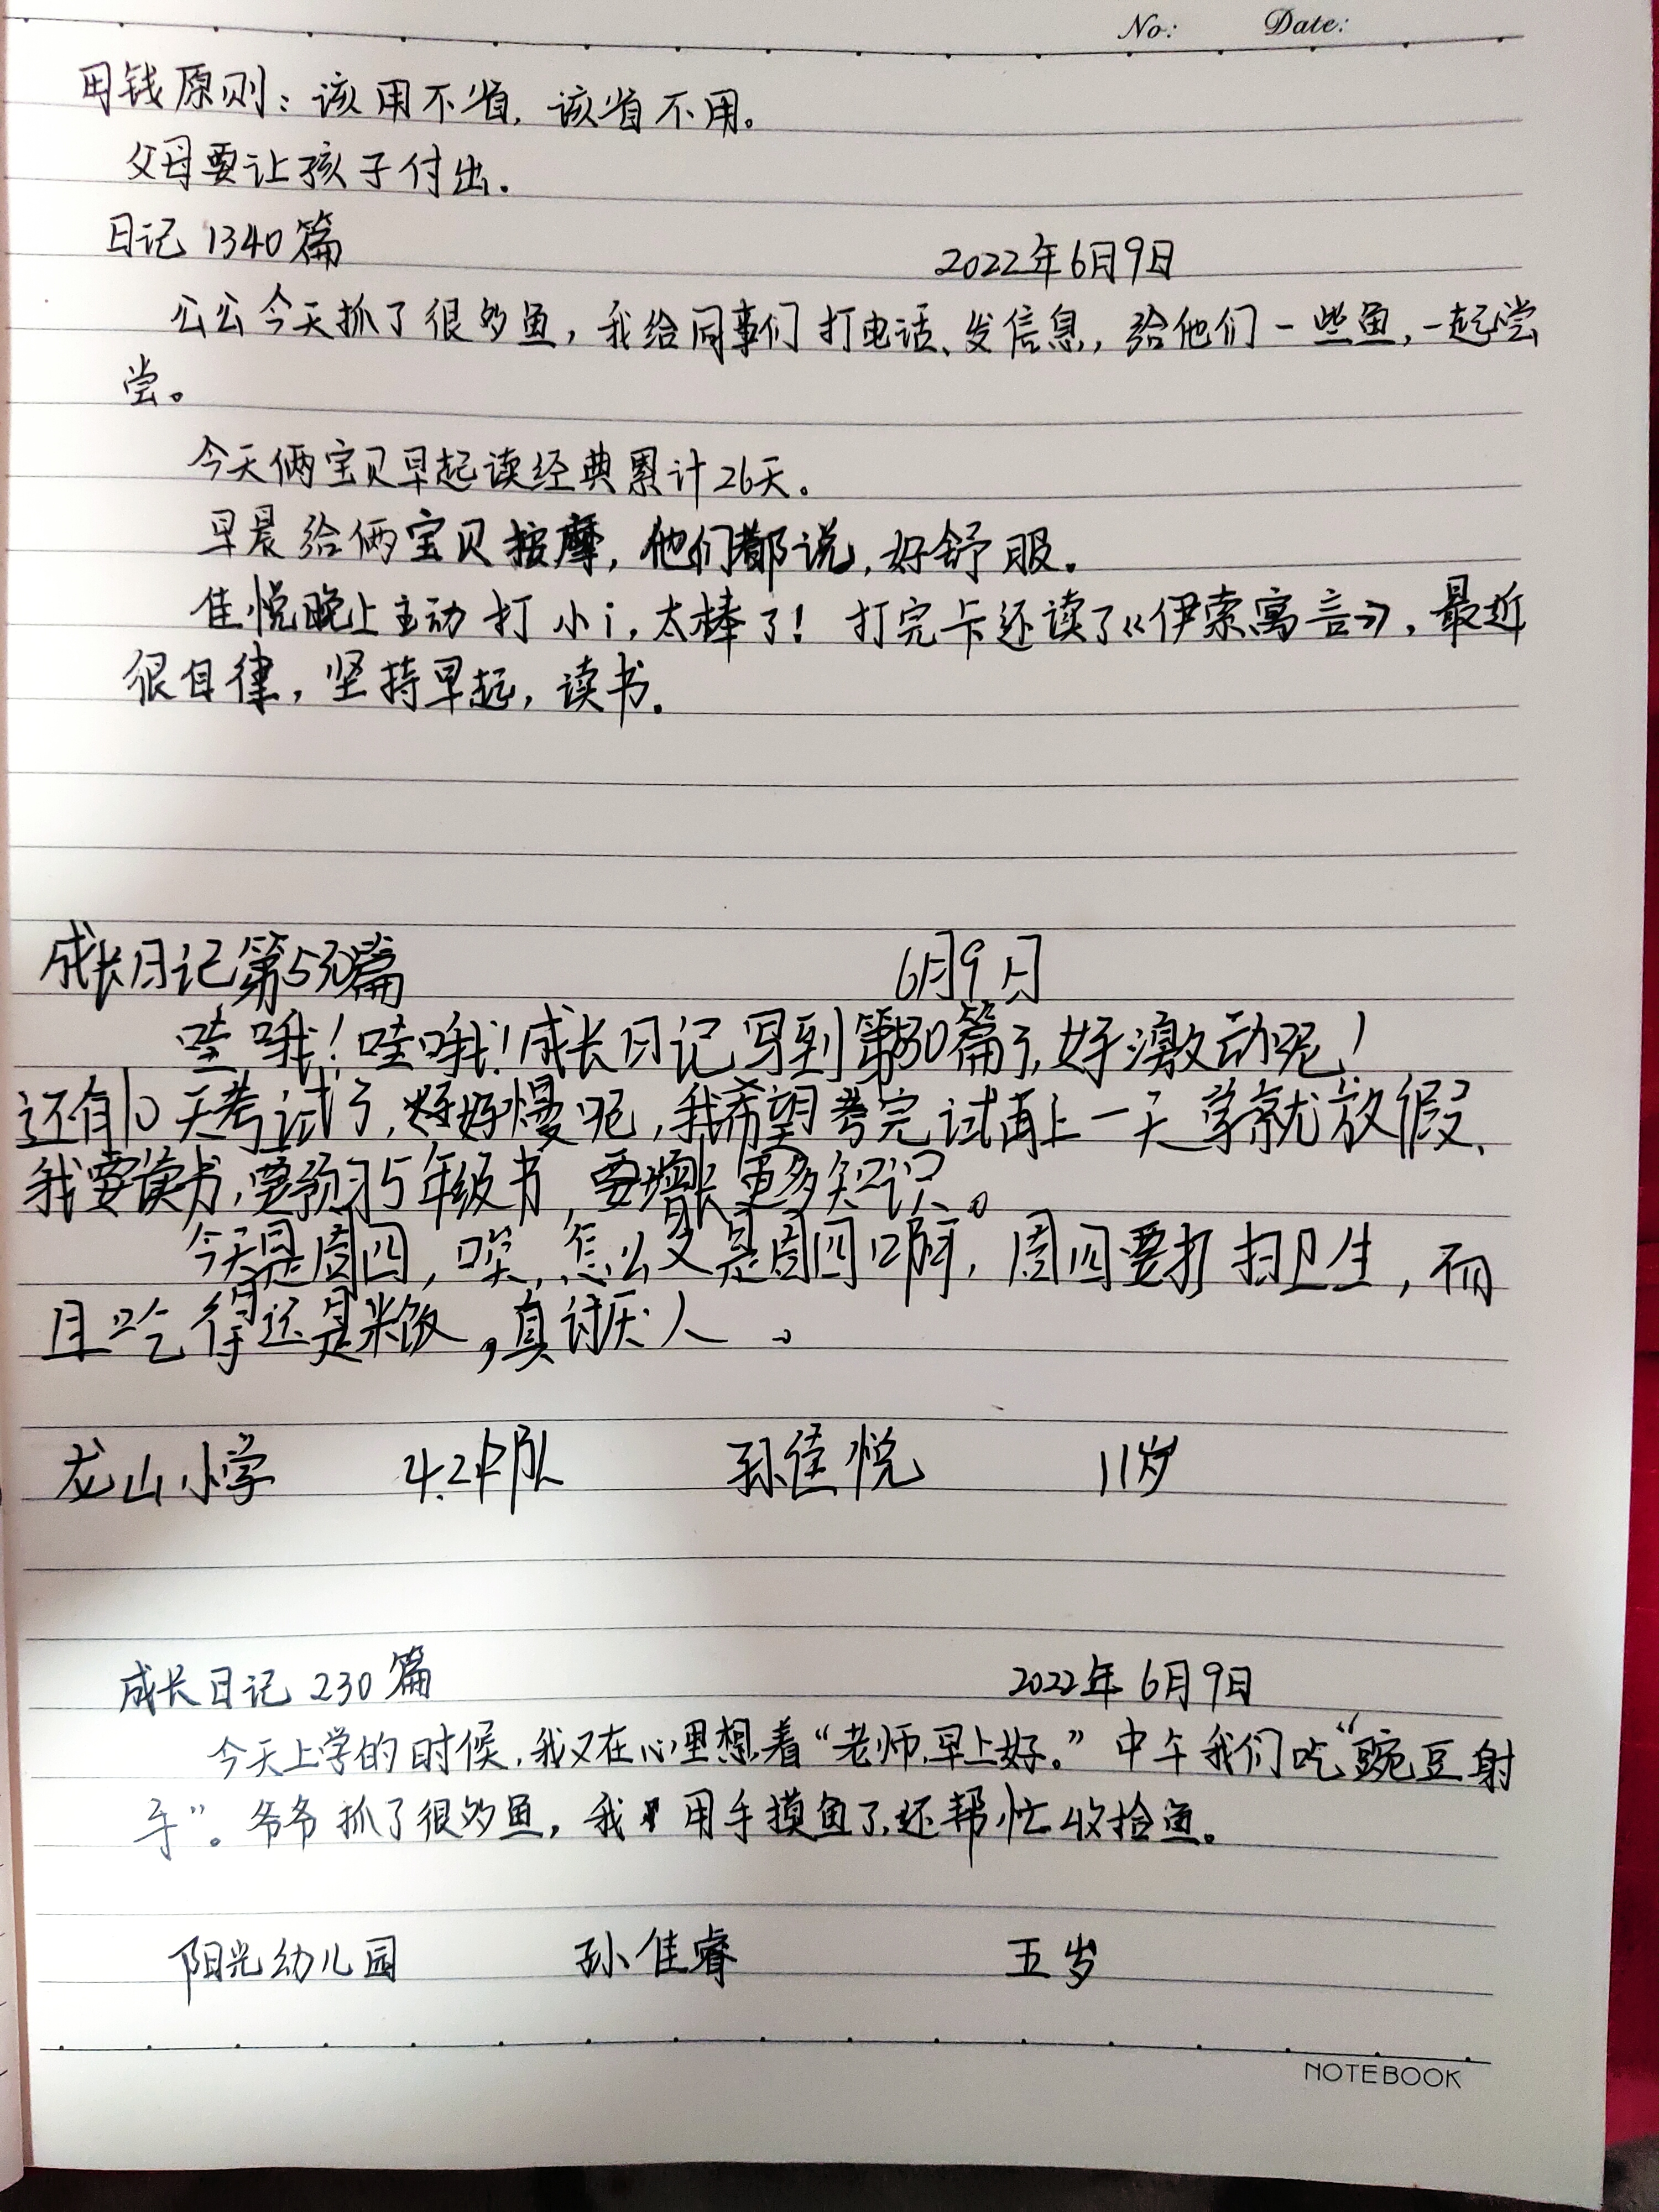 No: Date:
用钱原则：该用不省，该省不用。
父母要让孩子付出.
日记 1340篇 2022年6月9日
公公今天抓了很多鱼，我给同事们打电话、发信息，给他们一些鱼，一起尝
尝。
今天俩宝贝早起读经典累计26天。
早晨给俩宝贝按摩，他们都说，好舒服。
佳悦晚上主动打小i，太棒了！打完卡还读了《伊索寓言》，最近
很自律，坚持早起，读书.
成长日记第530篇 6月9日
哇哦！哇哦！成长日记写到第530篇了，好激动呢！
还有10天考试了，好慢呢，我希望考完试再上一天学就放假、
我要读书，要预习5年级书，要增长更多知识。
今天是周四，唉，怎么又是周四啊，周四要打扫卫生，而
且吃得还是米饭，真讨厌人。
龙山小学 4.2中队 孙佳悦 11岁
成长日记 230篇 2022年6月9日
今天上学的时候，我又在心里想着“老师，早上好。”中午我们吃“豌豆射
手”。爷爷抓了很多鱼，我用手摸鱼了，还帮忙收拾鱼。
阳光幼儿园 孙佳睿 五岁
NOTEBOOK